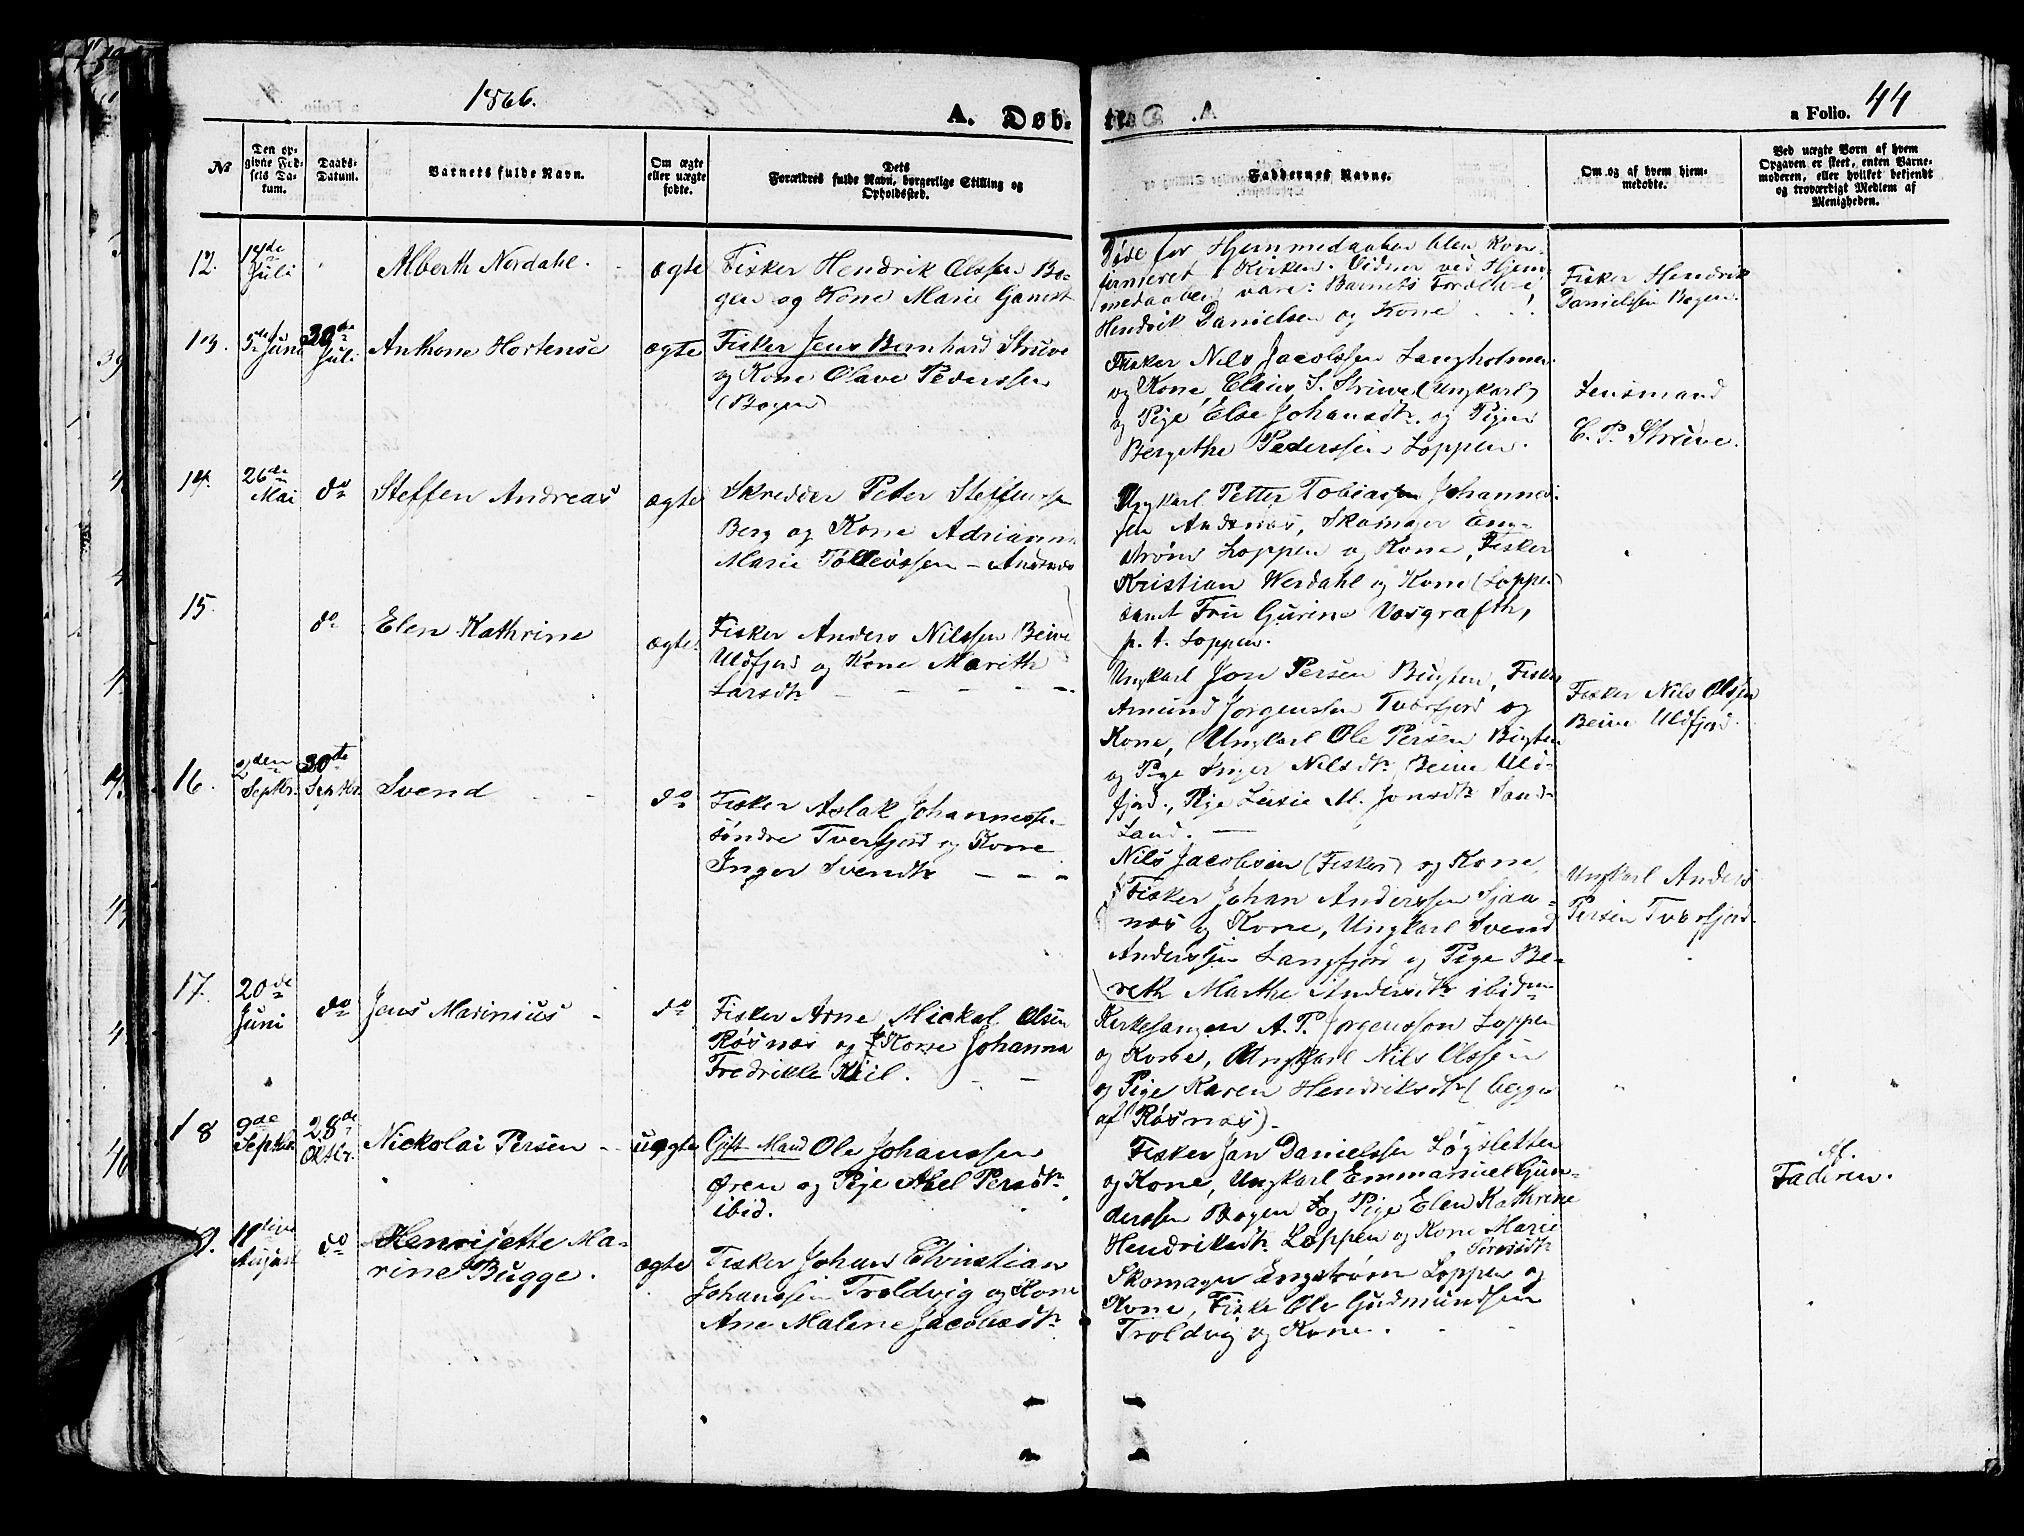 1866.
A. Døb.
a Folio. 44
№
Den opgivne Fødsels Datum.
Daabs-Datum.
Barnets fulde Navn.
Om ægte eller uægte fødte.
Dets Forældres fulde Navn, borgerlige Stilling og Opholdssted.
Faddernes Navne.
Om og af hvem hjemmedøbte.
Ved uægte Børn af hvem Opgaven er skeet, enten Barnemoderen, eller hvilket bekjendt og troværdigt Medlem af Menigheden.
12.
Juli
Alberth Nordahl.
ægte
Fisker Hendrik Olssen Bo-
gen og Kone Marie
Døde før Hjemmedaaben blev Kon-
firmeret i Kirken. Vidner ved Hjem-
medaaben vare: Barnets Forældre,
Hendrik Danielsen og Kone
Fisker Hendrik
Danielssen Bogen.
13.
5te Juni
30de Juli
Anthone Hortense
ægte
Fisker Jens Bernhard Struve
og Kone Olave Pederssen
(Bogen)
Fisker Nils Jacobssen Langholmen
og Kone, Claus S. Struwe (Ungkarl)
og Pige Else Johansdtr. og Pigen
Bergethe Pederssen Loppen.
Lensmand
C. P. Struve.
14.
26de Mai
do
Steffen Andreas
ægte
Skredder Peter Steffenssen
Berg og Kone Adrianna
Marie Tollevssen - Andsnæs
Ungkarl Petter Tobiassen Johannes-
sen Andsnæs, Skomager Eng-
strøm Loppen og Kone, Fisker
Kristian Werdahl og Kone (Loppen)
samt Fru Gurine Vosgrafth,
p. t. Loppen.
15.
do
Elen Kathrine
ægte.
Fisker Anders Nilssen Beive
Ulsfjord og Kone Marith
Larsdtr
Ungkarl Jon Persen Bugten, Fisker
Amund Jørgenssen Tværfjord og
Kone, Ungkarl Ole Persen Bugten
og Pige Inger Nilsdtr Beive Uls-
fjord., Pige Lusie M. Jonsdtr Sand-
land.
Fisker Nils Olssen
Beive Ulsfjord.
16.
2den Septbr.
30te Septbr.
Svend
do
Fisker Aslak Johannessen
søndre Tverfjord og Kone
Inger Svendtr
Nils Jacobsen (Fisker) og Kone,
Fisker Johan Anderssen Sjaa-
næs og Kone, Ungkarl Svend
Anderssen Langfjord og Pige Be-
reth Marthe Andersdtr ibidm
Ungkarl Anders
Persen Tværfjord.
17.
20de Juni
do
Jens Marinius
do
Fisker Arne Mickal Olsen
Røsnæs og Kone Johanna
Fredrikke Kiil.
Kirkesanger A. P. Jørgensson Loppen
og Kone, Ungkarl Nils Olssen
og Pige Karen Hendriksdtr (begge
af Røsnæs).
18
9de Septbr.
28de Oktbr.
Nickolai Persen
uægte
Gift Mand Ole Johanssen
Øren og Pige Abel Persdtr.
ibid.
Fisker Jan Danielssen Løgsletten
og Kone, Ungkarl Emmanuel Gun-
derssen Bogen og Pige Elen Kathrine
Hendriksdtr. Loppen og Kone Marie
Sørensdtr
Af
Faderen.
19.
11te August
do
Henrijette Ma-
rine Bugge.
ægte
Fisker Johan Christian
Johanssen Troldvig og Kone
Ane Malene Jacobsdtr
Skomager Engstrøm Loppen og
Kone, Fisker Ole Gudmundsen
Troldvig og Kone.